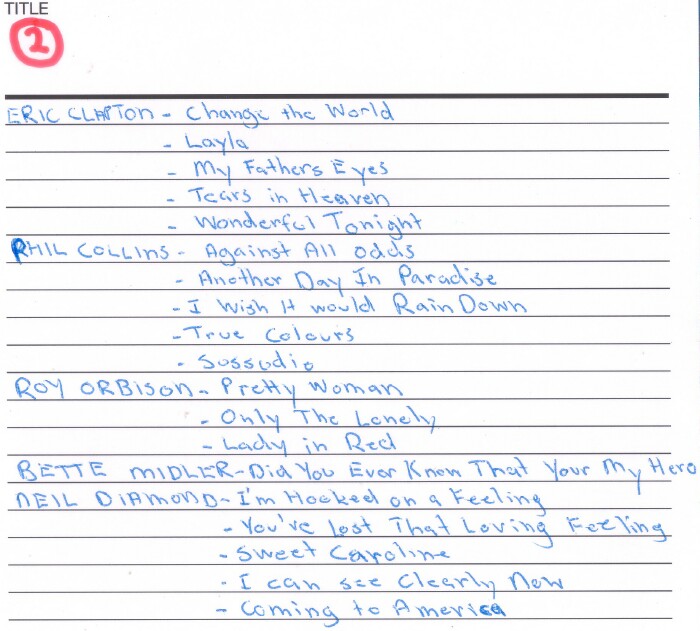 TITLE
2
ERIC CLAPTON - Change the World
- Layla
- My Fathers Eyes
- Tears in Heaven
- Wonderful Tonight
PHIL COLLINS - Against All Odds
- Another Day In Paradise
- I Wish It would Rain Down
- True Colours
- Sussudio
ROY ORBISON - Pretty Woman
- Only The Lonely
- Lady in Red
BETTE MIDLER - Did You Ever Know That Your My Hero
NEIL DIAMOND - I'm Hooked on a Feeling
- You've Lost That Loving Feeling
- Sweet Caroline
- I can see Clearly Now
- Coming to America